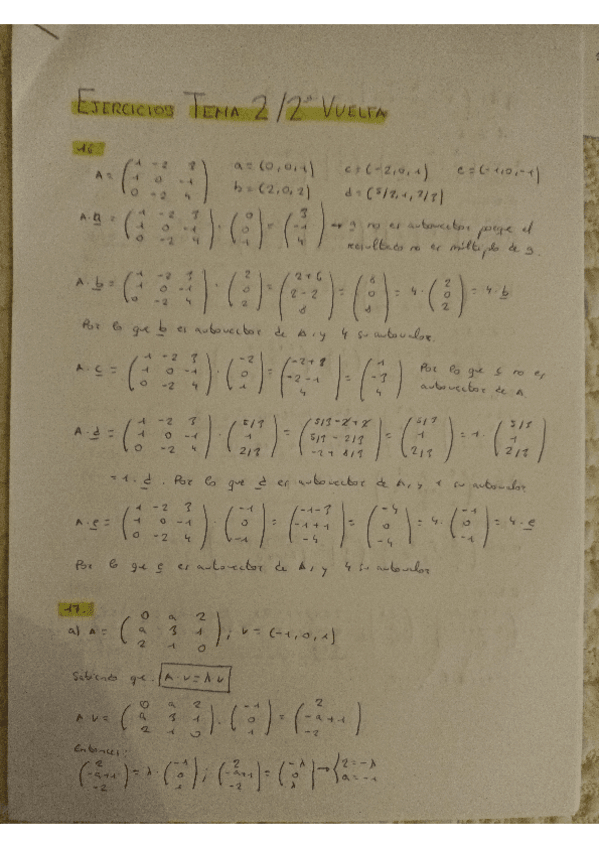 EJERCICIOS TEMA 2 / 2ª VUELTA
16.
A = (1 -2 3 / 1 0 -1 / 0 -2 4) a = (0,0,1) c = (-2,0,1) e = (-1,0,-1)
b = (2,0,2) d = (5/3,1,2/3)
A·a = (1 -2 3 / 1 0 -1 / 0 -2 4) · (0 / 0 / 1) = (3 / -1 / 4) → a no es autovector porque el
resultado no es múltiplo de a.
A·b = (1 -2 3 / 1 0 -1 / 0 -2 4) · (2 / 0 / 2) = (2+6 / 2-2 / 8) = (8 / 0 / 8) = 4 · (2 / 0 / 2) = 4·b
Por lo que b es autovector de A, y 4 su autovalor.
A·c = (1 -2 3 / 1 0 -1 / 0 -2 4) · (-2 / 0 / 1) = (-2+3 / -2-1 / 4) = (1 / -3 / 4) Por lo que c no es
autovector de A.
A·d = (1 -2 3 / 1 0 -1 / 0 -2 4) · (5/3 / 1 / 2/3) = (5/3-2+2 / 5/3-2/3 / -2+8/3) = (5/3 / 1 / 2/3) = 1 · (5/3 / 1 / 2/3)
= 1·d. Por lo que d es autovector de A, y 1 su autovalor
A·e = (1 -2 3 / 1 0 -1 / 0 -2 4) · (-1 / 0 / -1) = (-1-3 / -1+1 / -4) = (-4 / 0 / -4) = 4 · (-1 / 0 / -1) = 4·e
Por lo que e es autovector de A, y 4 su autovalor
17.
a) A = (0 a 2 / a 3 1 / 2 1 0) ; v = (-1,0,1)
Sabiendo que: A·v = λv
A·v = (0 a 2 / a 3 1 / 2 1 0) · (-1 / 0 / 1) = (2 / -a+1 / -2)
Entonces:
(2 / -a+1 / -2) = λ · (-1 / 0 / 1) ; (2 / -a+1 / -2) = (-λ / 0 / λ) → { 2 = -λ / a = -1